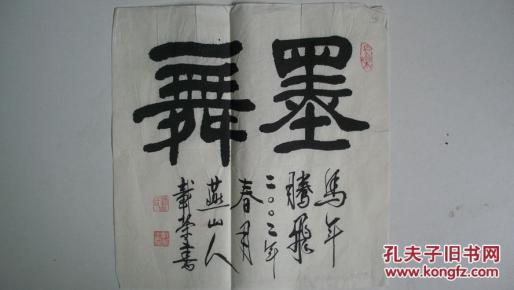 墨舞
馬年
騰飛
二〇〇二年
春月
燕山人
戴榮書
孔夫子旧书网
KONGFZ.COM